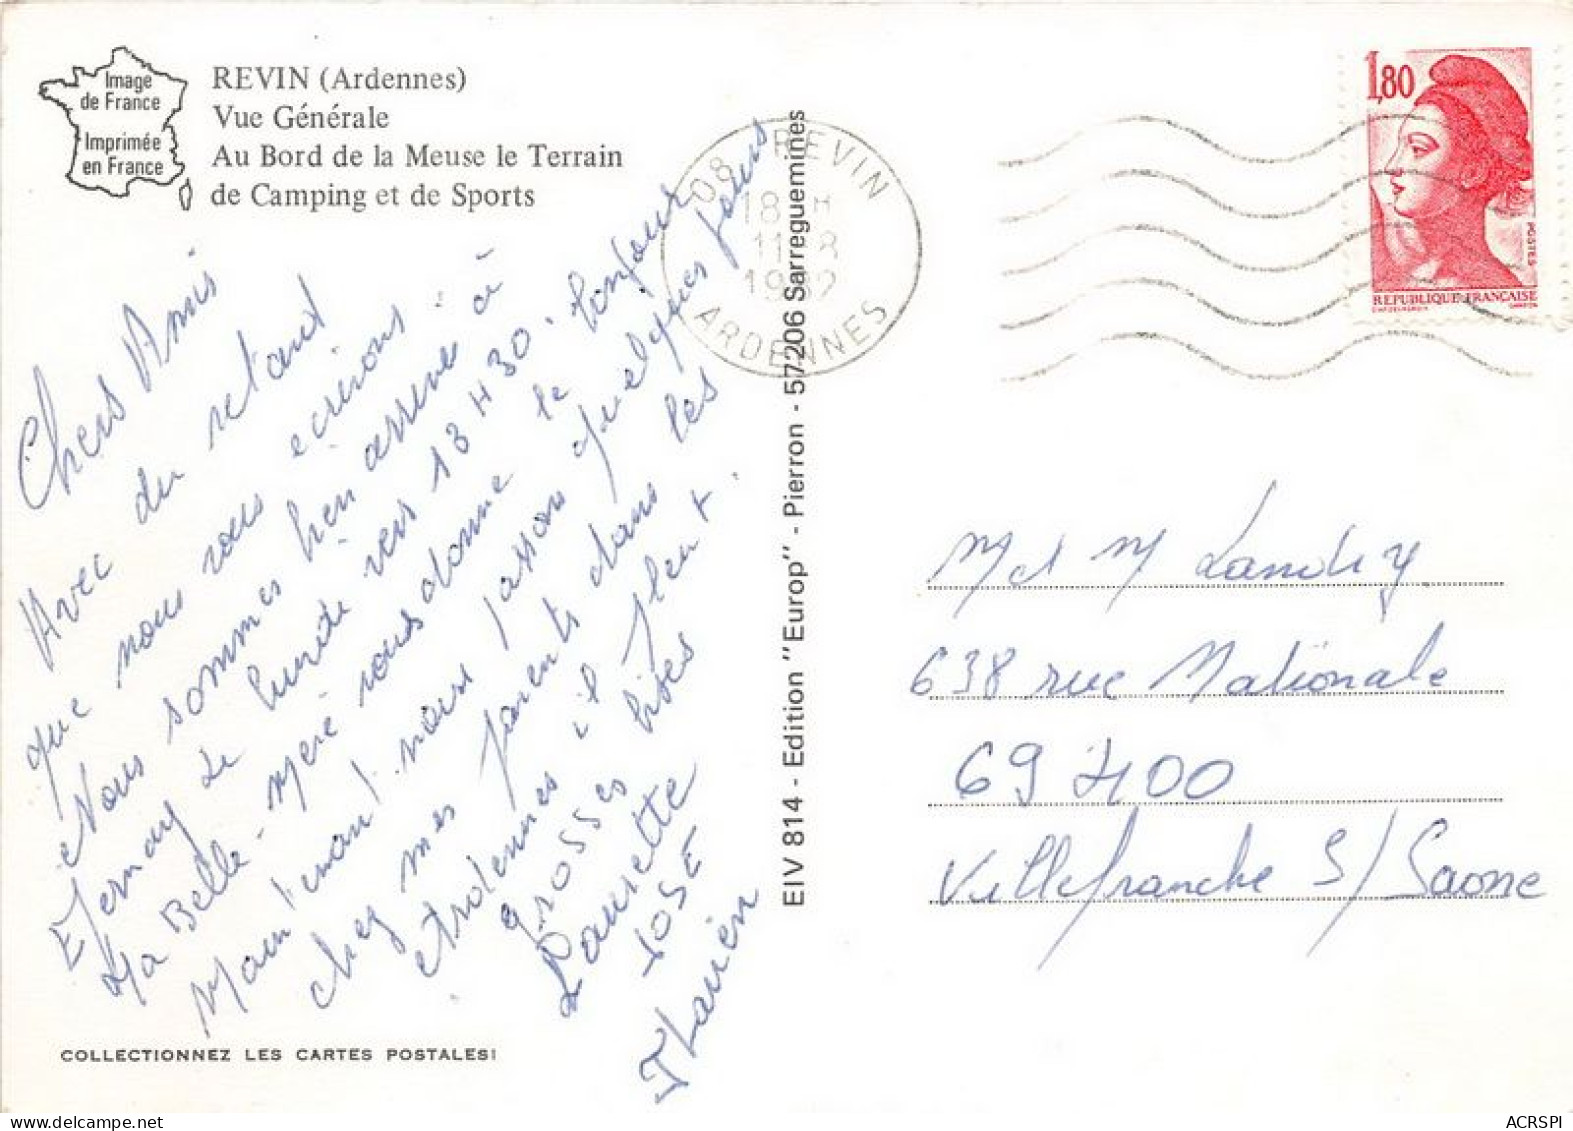 Image
de France
Imprimée
en France
REVIN (Ardennes)
Vue Générale
Au Bord de la Meuse le Terrain
de Camping et de Sports
Chers Amis
Avec du retard
que nous vous ecrirons. à
Nous sommes bien arriver
Epernay Le lundi vers 13 H 30. bonjour
La Belle-mere nous donne le
Maintenant nous passons quelques jours
chez mes parents dans les
etrolennes il pleut.
grosses bises
Laurette
JOSE
Flavien
COLLECTIONNEZ LES CARTES POSTALES!
EIV 814 - Edition "Europ" - Pierron - 57206 Sarreguemines
08 REVIN
18 H
11 8
1982
ARDENNES
1,80
POSTES
REPUBLIQUE FRANÇAISE
M et M Landry
638 rue Nationale
69 400
Villefranche S/Saone
ACRSPI